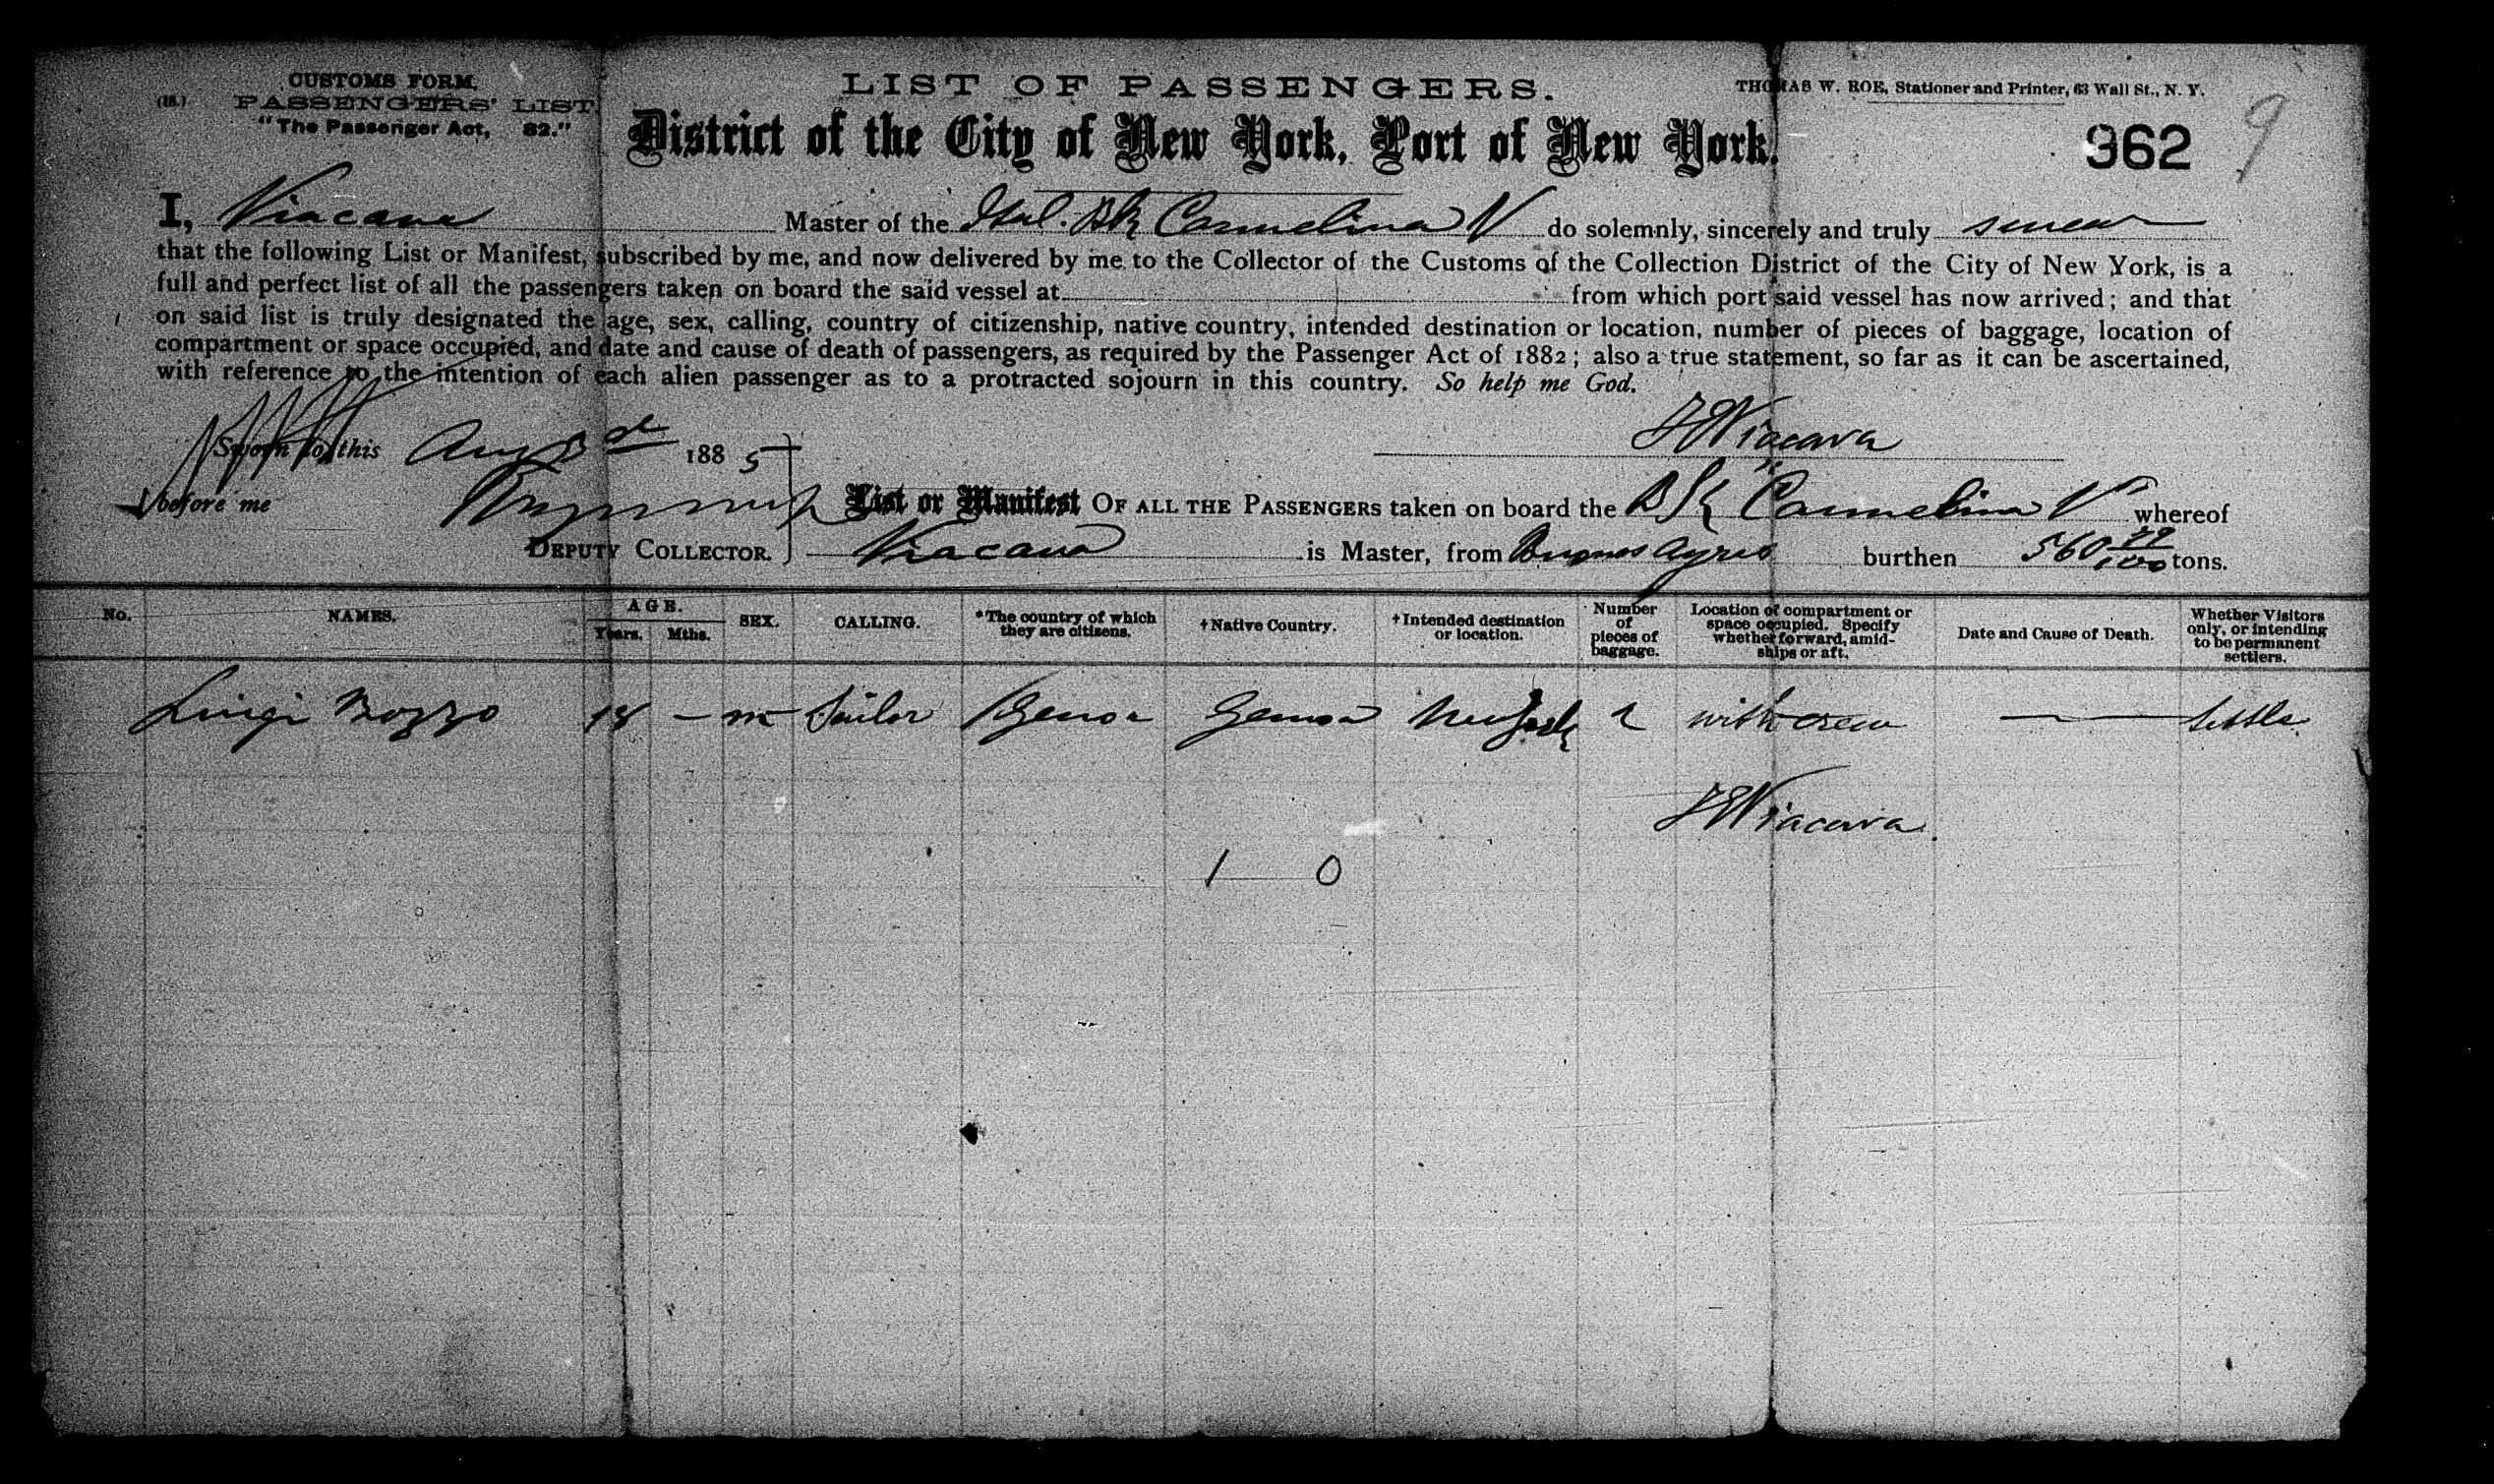 CUSTOMS FORM.
(18.) PASSENGERS' LIST
"The Passenger Act, 82."
LIST OF PASSENGERS.
THOMAS W. ROE, Stationer and Printer, 63 Wall St., N. Y.
District of the City of New York, Port of New York.
362 9
I, Viacava Master of the Ital. Bk Carmelina V do solemnly, sincerely and truly swear
that the following List or Manifest, subscribed by me, and now delivered by me to the Collector of the Customs of the Collection District of the City of New York, is a
full and perfect list of all the passengers taken on board the said vessel at from which port said vessel has now arrived; and that
on said list is truly designated the age, sex, calling, country of citizenship, native country, intended destination or location, number of pieces of baggage, location of
compartment or space occupied, and date and cause of death of passengers, as required by the Passenger Act of 1882; also a true statement, so far as it can be ascertained,
with reference to the intention of each alien passenger as to a protracted sojourn in this country. So help me God.
Viacava
Sworn to this Aug 3 1885
before me
List or Manifest OF ALL THE PASSENGERS taken on board the Bk Carmelina V whereof
DEPUTY COLLECTOR. Viacava is Master, from Buenos Ayres burthen 560 79/100 tons.
No. NAMES. AGE. Years. Mths. SEX. CALLING. *The country of which they are citizens. †Native Country. †Intended destination or location. Number of pieces of baggage. Location of compartment or space occupied. Specify whether forward, amidships or aft. Date and Cause of Death. Whether Visitors only, or intending to be permanent settlers.
Luigi Bozzo 18 — m Sailor Genoa Genoa New York 2 with crew — Settle
Viacava
1 0